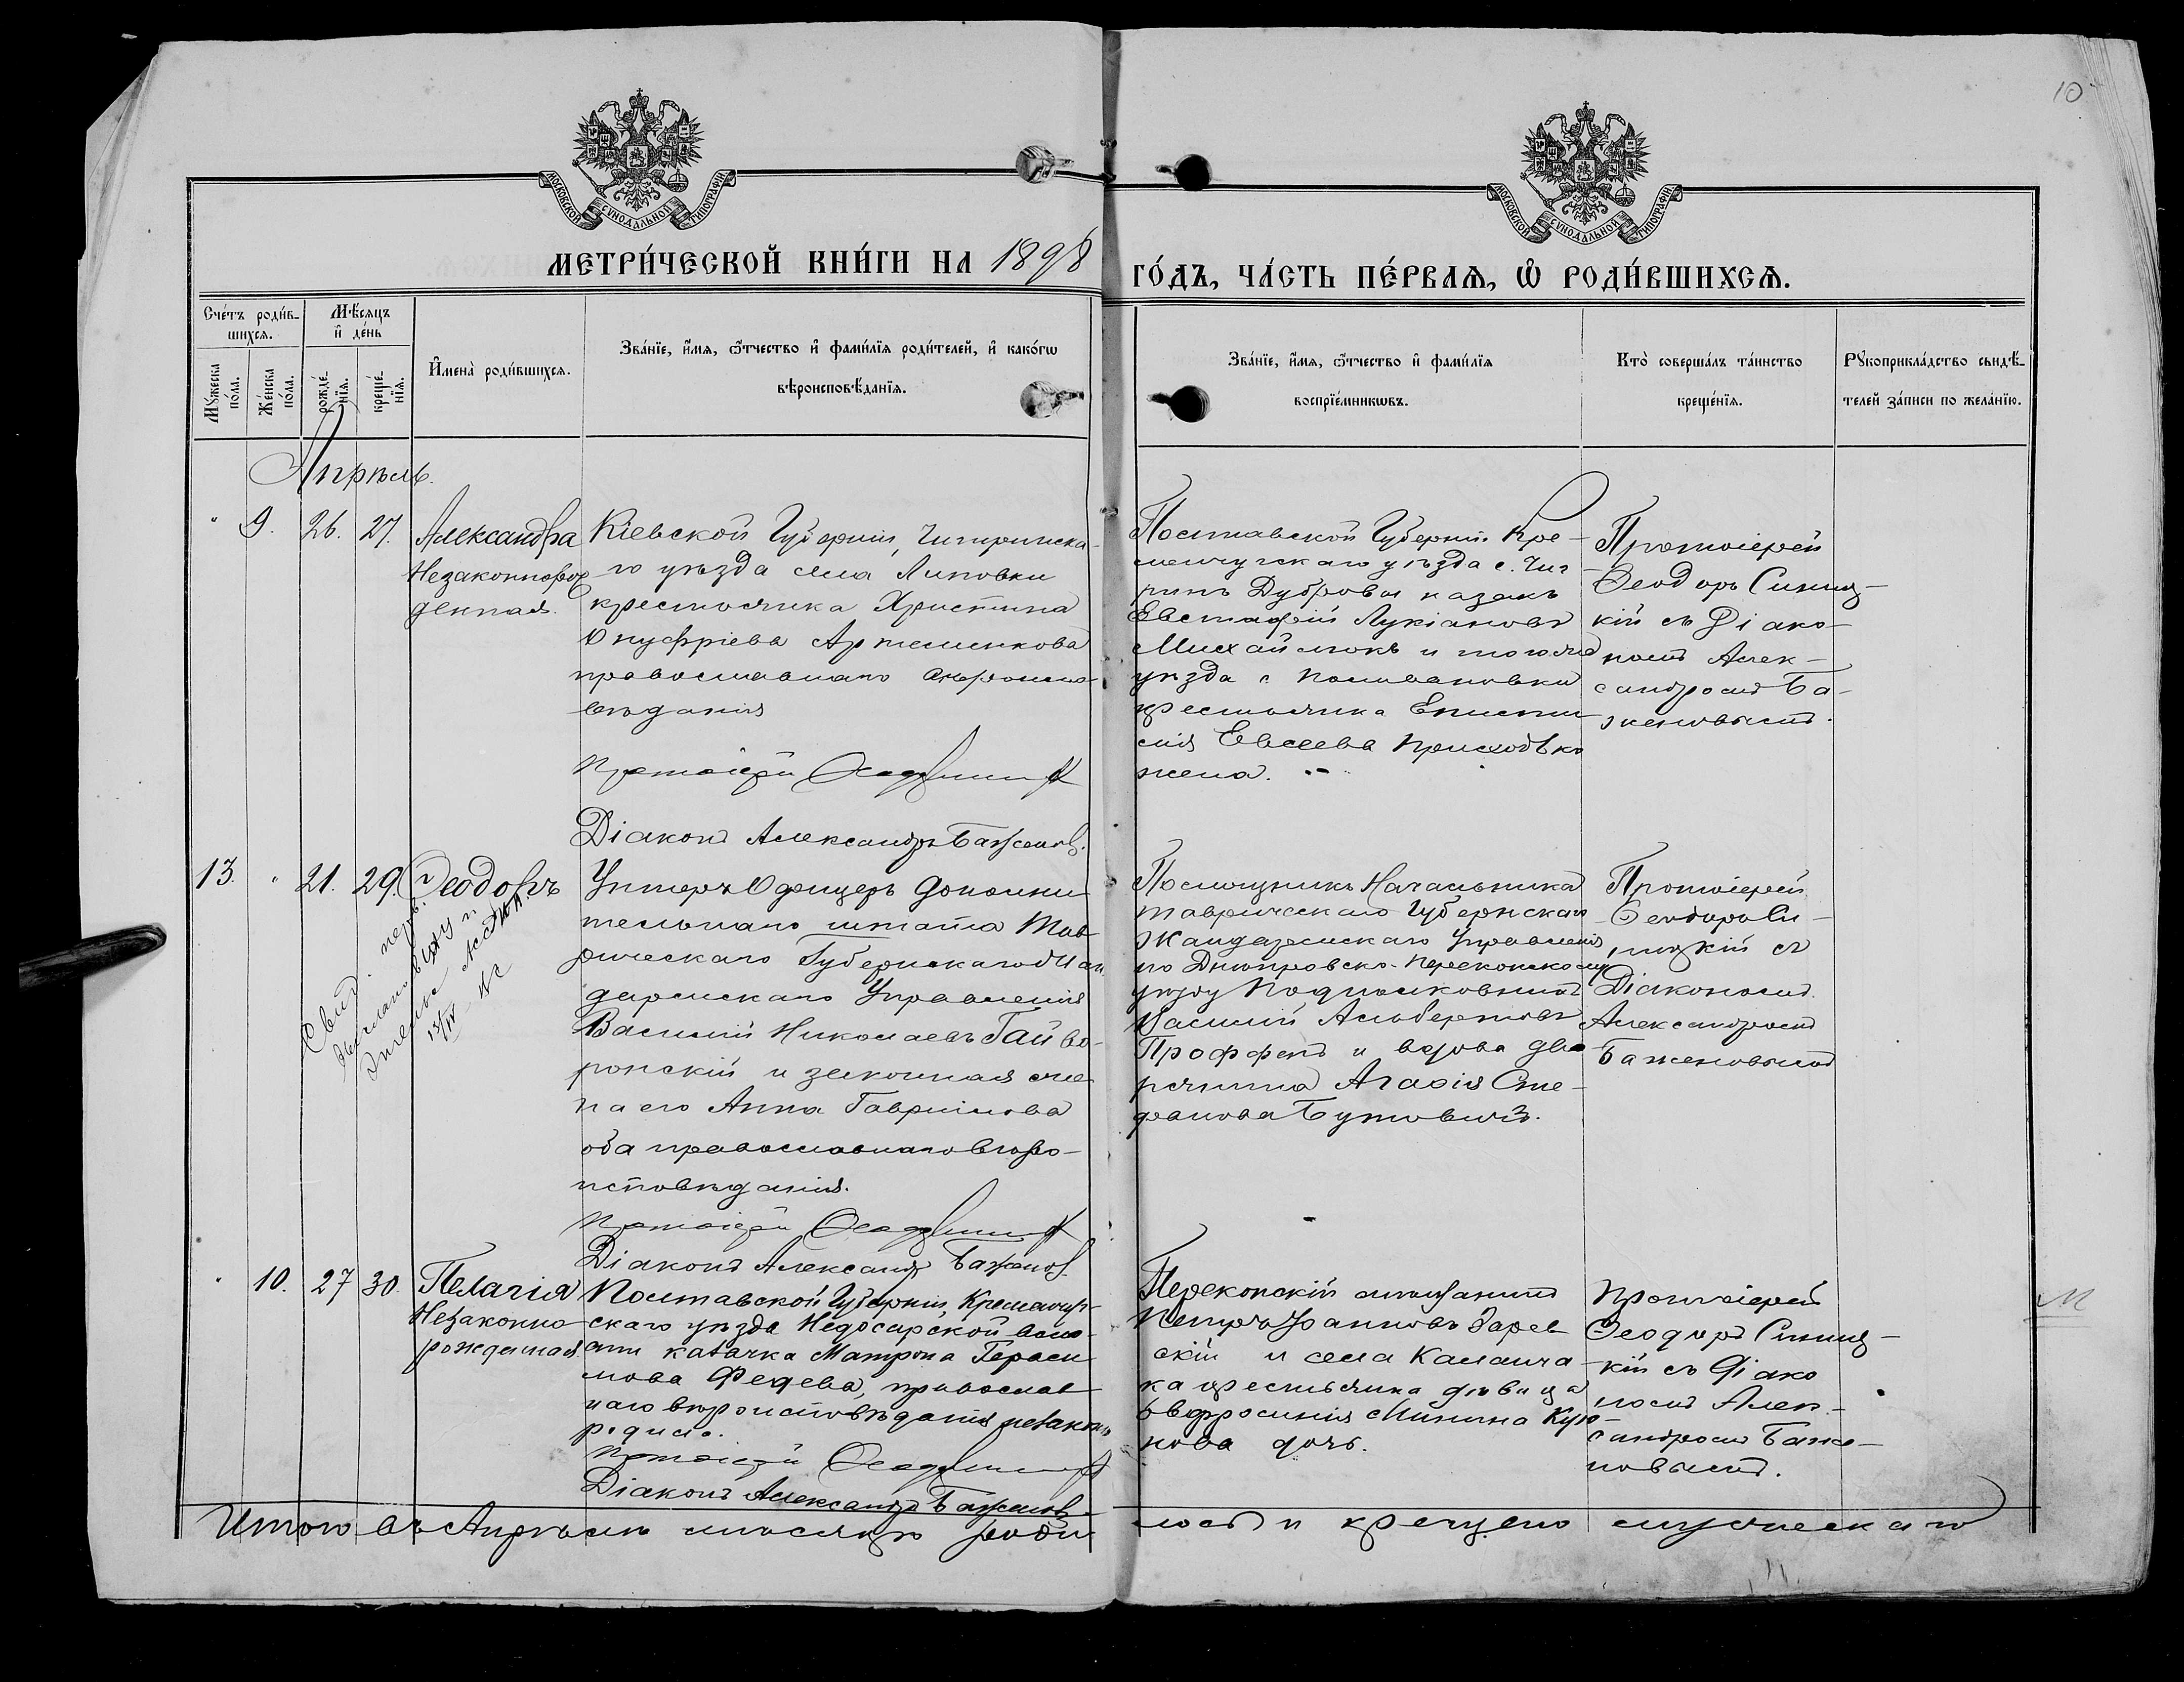 10
МОСКОВСКОЙ СУНОДАЛЬНОЙ ТИПОГРАФІИ
МОСКОВСКОЙ СУНОДАЛЬНОЙ ТИПОГРАФІИ
МЕТРИ́ЧЕСКОЙ КНИ́ГИ НА 1898
ГО́ДЪ, ЧА́СТЬ ПЕ́РВАѦ, Ѡ РОДИ́ВШИХСѦ.
Сче́тъ роди́в-
шихсѧ.
Мѣ́сѧцъ
и҆ де́нь
Мꙋ́жеска
по́ла.
Же́нска
по́ла.
рожде́-
нїѧ.
креще́-
нїѧ.
И҆мена̀ роди́вшихсѧ.
Зва́нїе, и҆́мѧ, ѻ҆́тчество и҆ фами́лїѧ роди́телей, и҆ како́гѡ
вѣроисповѣ́данїѧ.
Зва́нїе, и҆́мѧ, ѻ҆́тчество и҆ фами́лїѧ
воспрїе́мникѡвъ.
Кто̀ соверша́лъ та́инство
креще́нїѧ.
Рꙋкоприкла́дство свидѣ́-
телей за́писи по жела́нїю.
Апрѣль.
" 9. 26. 27.
Александра
Незаконнорож
денная.
Кіевской Губерніи, Чигиринска-
го уѣзда села Липовки
крестьянка Христина
Онуфріева Артеменкова
православнаго вѣроиспо-
вѣданія
Протоіерей
Діаконъ Александръ Баженовъ.
Полтавской Губерніи Кре-
менчугскаго уѣзда с. Чиг-
ринъ Дубровы казакъ
Евстафій Лукіановъ
Михайлюкъ и того же
уѣзда с
крестьянка
Евсеева Приходько
жена.
Протоіерей
Ѳеодоръ Синиц-
кій съ Діако-
номъ Алек-
сандромъ Ба-
женовымъ.
13. " 21. 29.
Ѳеодоръ
Свид. перв.
13/IV
Унтеръ Офицеръ дополни
тельнаго штата Тав
рическаго Губернскаго Жан
дармскаго Управленія
Василій Николаевъ Гайво-
ронскій и законная же
на его Анна Гавриилова
оба православнаго вѣро-
исповѣданія.
Протоіерей
Діаконъ Александръ Баженовъ
Помощникъ Начальника
Таврическаго Губернскаго
Жандармскаго Управленія
по Днѣпровско-Перекопскому
уѣзду Подполковникъ
Василій Альбертовъ
Проффенъ и вдова дво
рянина Агаѳія Сте-
фанова Бутовичъ.
Протоіерей
Ѳеодоръ Си-
ницкій съ
Діакономъ
Александромъ
Баженовымъ
" 10. 27 30.
Пелагія
Незаконно
рожденная.
Полтавской Губерніи, Кременчуг-
скаго уѣзда Недогарской воло-
сти казачка Матрона Гераси
мова Федева, православ
наго вѣроисповѣданія незаконно
родила.
Протоіерей
Діаконъ Александръ Баженовъ.
Перекопскій мѣщанинъ
Петръ Іоанновъ Зарев
скій и села Каланча
ка крестьянка дѣвица
Евфросинія Минина Кую-
кова дочь.
Протоіерей
Ѳеодоръ Синиц-
кій съ Діако
номъ Алек-
сандромъ Баже-
новымъ.
М
Итого въ Апрѣлѣ мѣсяцѣ роди
лось и крещено мужескаго